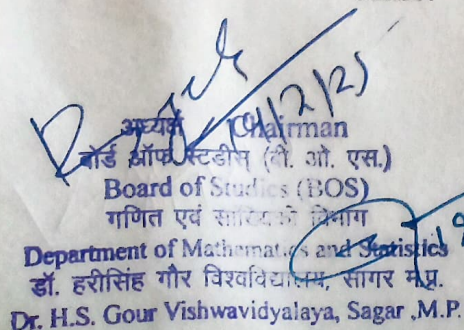 अध्यक्ष Chairman
बोर्ड ऑफ स्टडीस (बी. ओ. एस.)
Board of Studies (BOS)
गणित एवं सांख्यिकी विभाग
Department of Mathematics and Statistics
डॉ. हरीसिंह गौर विश्वविद्यालय, सागर म.प्र.
Dr. H.S. Gour Vishwavidyalaya, Sagar ,M.P.